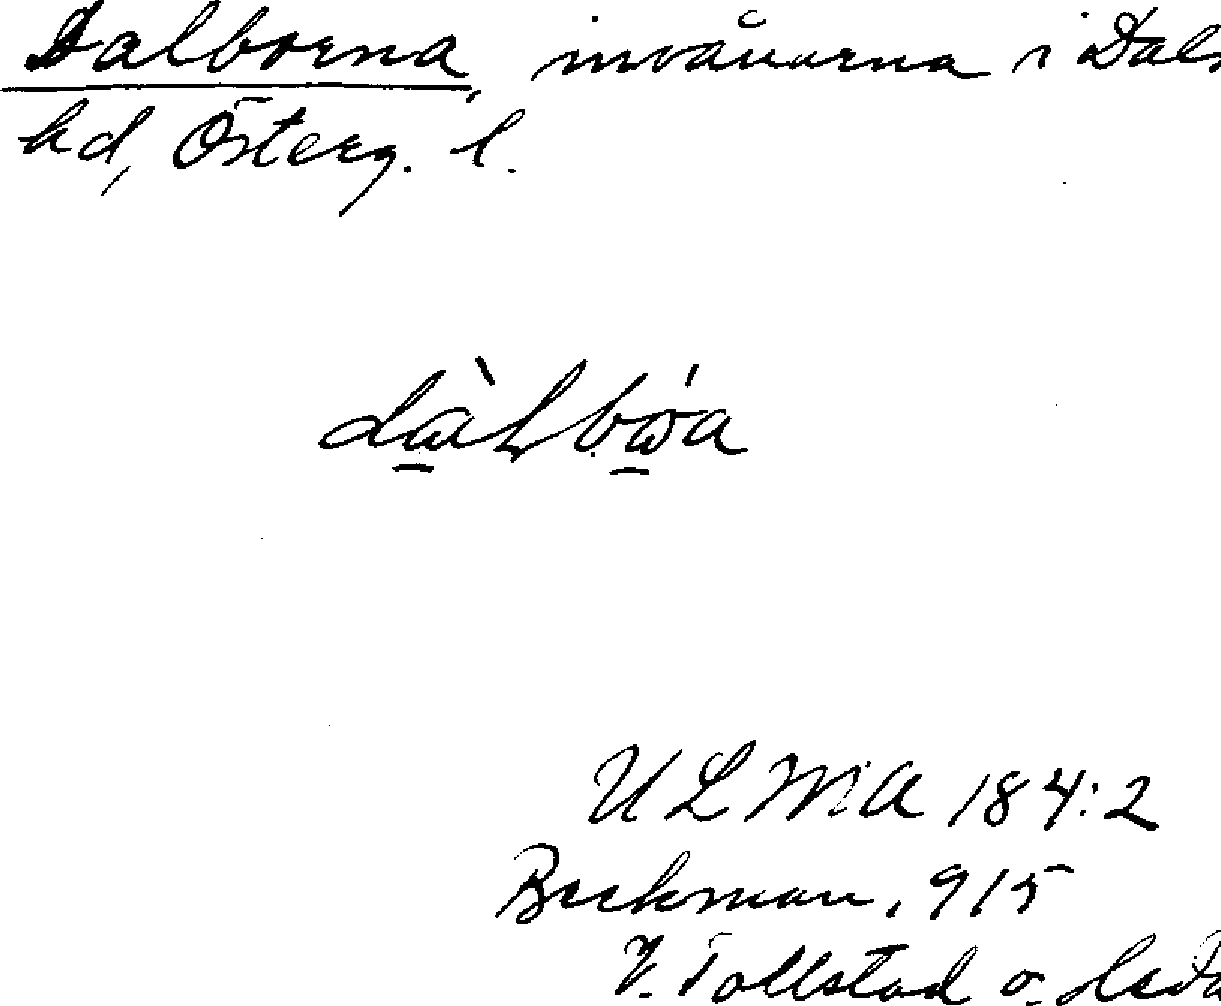 Dalborna, invånarna i Dals
hd, Österg. l.
ULMA 184:2
Beckman, 915
V. Tollstad o. Heda